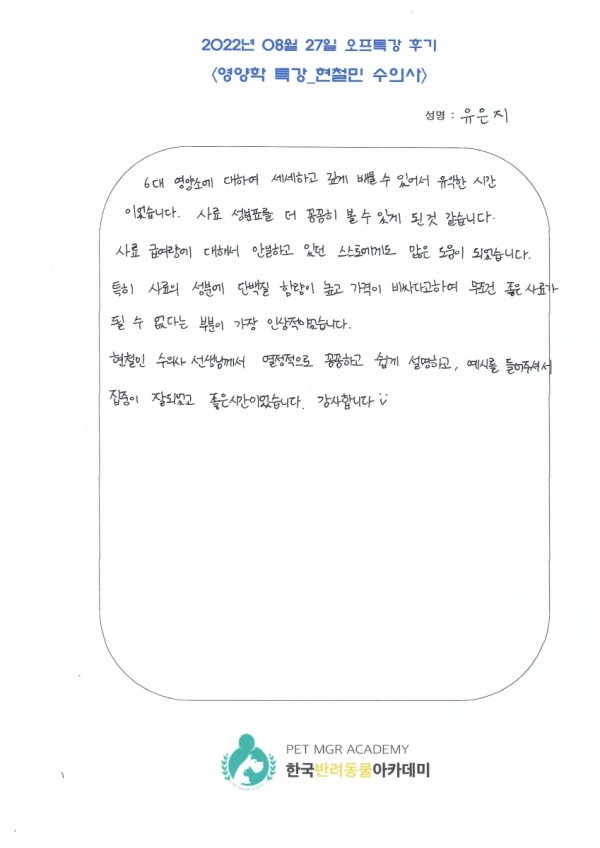 2022년 08월 27일 오프특강 후기
<영양학 특강_현철민 수의사>
성명 : 유은지
6대 영양소에 대하여 세세하고 깊게 배울 수 있어서 유익한 시간
이었습니다. 사료 성분표를 더 꼼꼼히 볼 수 있게 된 것 같습니다.
사료 급여량에 대해서 안일하고 있던 스스로에게도 많은 도움이 되었습니다.
특히 사료의 성분에 단백질 함량이 높고 가격이 비싸다고하여 무조건 좋은 사료가
될 수 없다는 부분이 가장 인상적이었습니다.
현철민 수의사 선생님께서 열정적으로 꼼꼼하고 쉽게 설명하고, 예시를 들어주셔서
집중이 잘되었고 좋은시간이었습니다. 감사합니다
PET MGR ACADEMY
한국반려동물아카데미